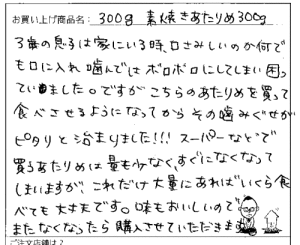 お買い上げ商品名: 300g 素焼きあたりめ300g
3番の息子は家にいる時、口さみしいのか何で
も口に入れ噛んではボロボロにしてしまい困っ
ていました。ですがこちらのあたりめを買って
食べさせるようになってからその噛みぐせが
ピタリと治まりました!!! スーパーなどで
買うあたりめは量も少なく、すぐになくなって
しまいますが、これだけ大量にあればいくら食
べても大丈夫です。味もおいしいので
またなくなったら購入させていただきます
ご注文店舗は?